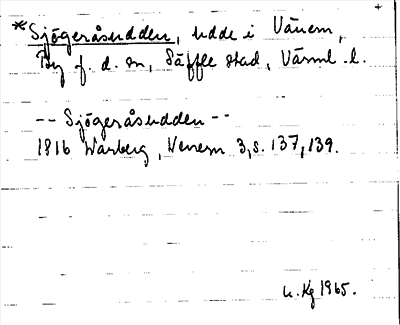 *Sjögeråsudden, udde i Vänern,
By f. d. sn, Säffle stad, Värml. l.
-- Sjögeråsudden --
1816 Warberg, Venern 3, s. 137, 139.
u. Kg 1965.